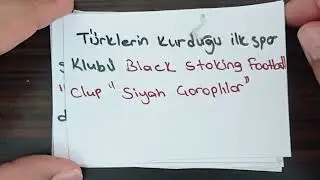 Türklerin kurduğu ilk spor
Klubü Black Stoking Football
Clup " Siyah Çoraplılar "